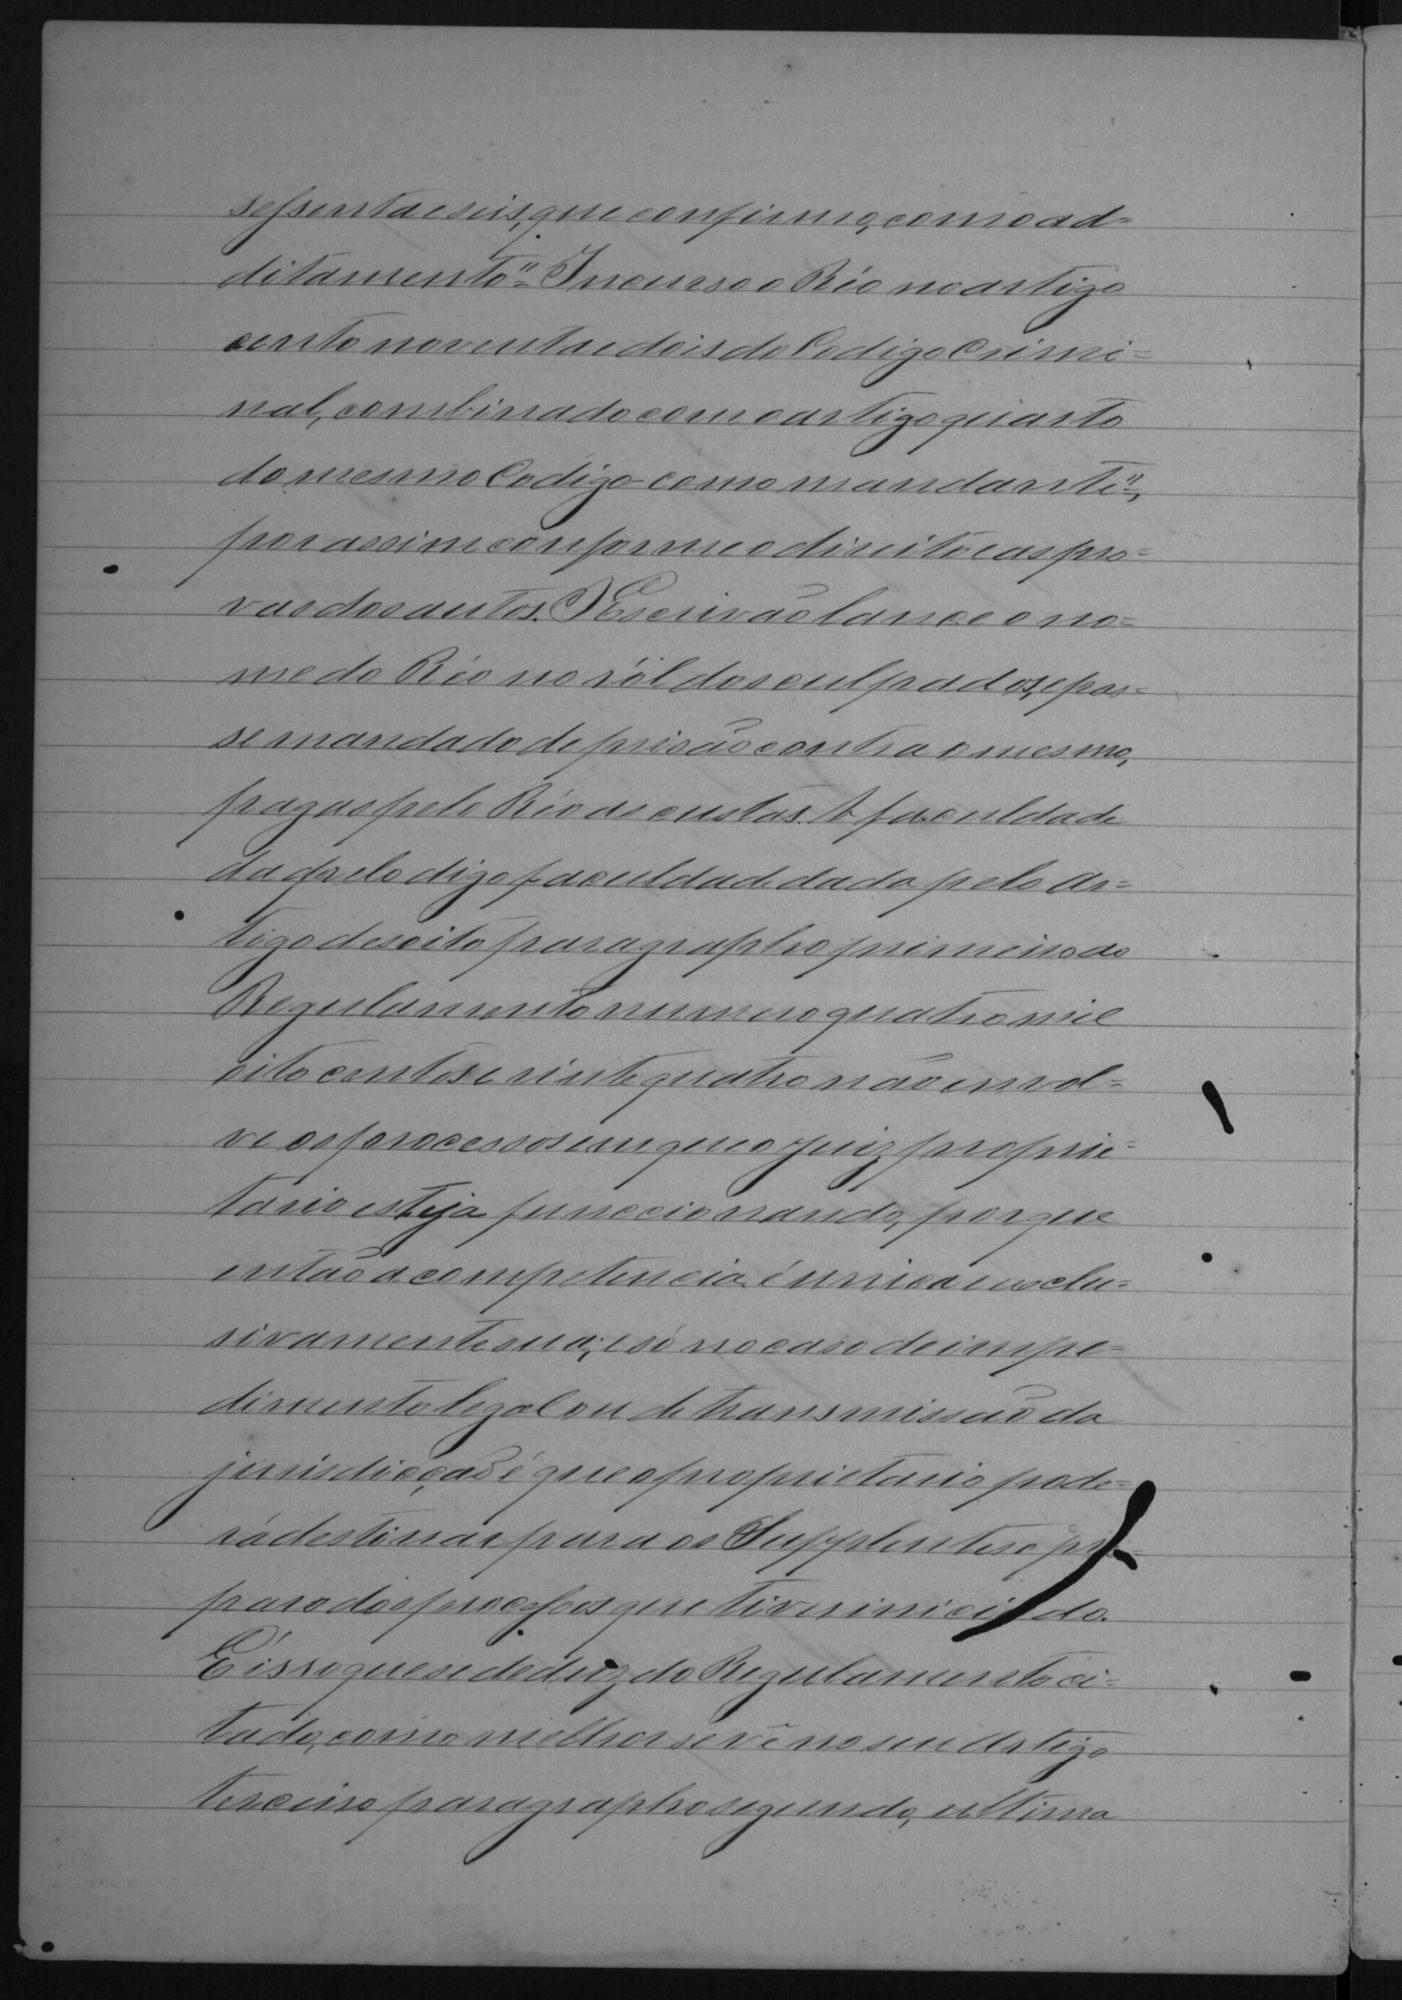 sessenta e seis, que confirmo, com o ad=
ditamento "Incurso o Réo no artigo
cento noventa e dois do Codigo Crimi=
nal, combinado com o artigo quarto
do mesmo Codigo - como mandante",
por assim conforme o direito e as pro=
vas dos autos. O Escrivão lance o no=
me do Réo no ról dos culpados, e pas=
se mandado de prisão contra o mesmo,
pagas pelo Réo as custas. A faculdade
da pelo digo faculdade dada pelo Ar=
tigo desoito paragrapho primeiro do
Regulamento numero quatro mil
oito centos e vinte quatro não envol=
ve os processos em que o Juiz proprie=
tario esteja funccionando, porque
então a competencia é unica e exclu=
sivamente sua; e só no caso de impe=
dimento legal ou de transmissão da
jurisdicção é que o proprietario pode=
rá destinar para os Supplentes o pre=
paro dos processos que tiver iniciado.
É isso que se deduz do Regulamento ci=
tado, como melhor se vê no seu Artigo
terceiro paragrapho segundo, ultima